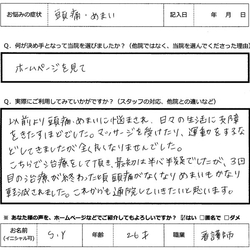 お悩みの症状 頭痛・めまい 記入日 年 月 日
Q．何が決め手となって当院を選びましたか？（他院ではなく、当院を選んでくださった理由）
ホームページを見て
Q．実際にご利用してみていかがですか？（スタッフの対応、他院との違いなど）
以前より頭痛・めまいに悩まされ、日々の生活に支障
をきたすほどでした。マッサージを受けたり、運動をするな
どしてきましたが全く良くなりませんでした。
こちらで治療をして頂き、最初は半心半疑でしたが、3回
目の治療が終わった頃頭痛がなくなりめまいもかなり
軽減されました。これからも通院していきたいと思います。
※ あなた様の声を、ホームページなどでご紹介してもよろしいですか？ はい 匿名で ダメ
お名前（イニシャル可） S．Y 年齢 26才 職業 看護師